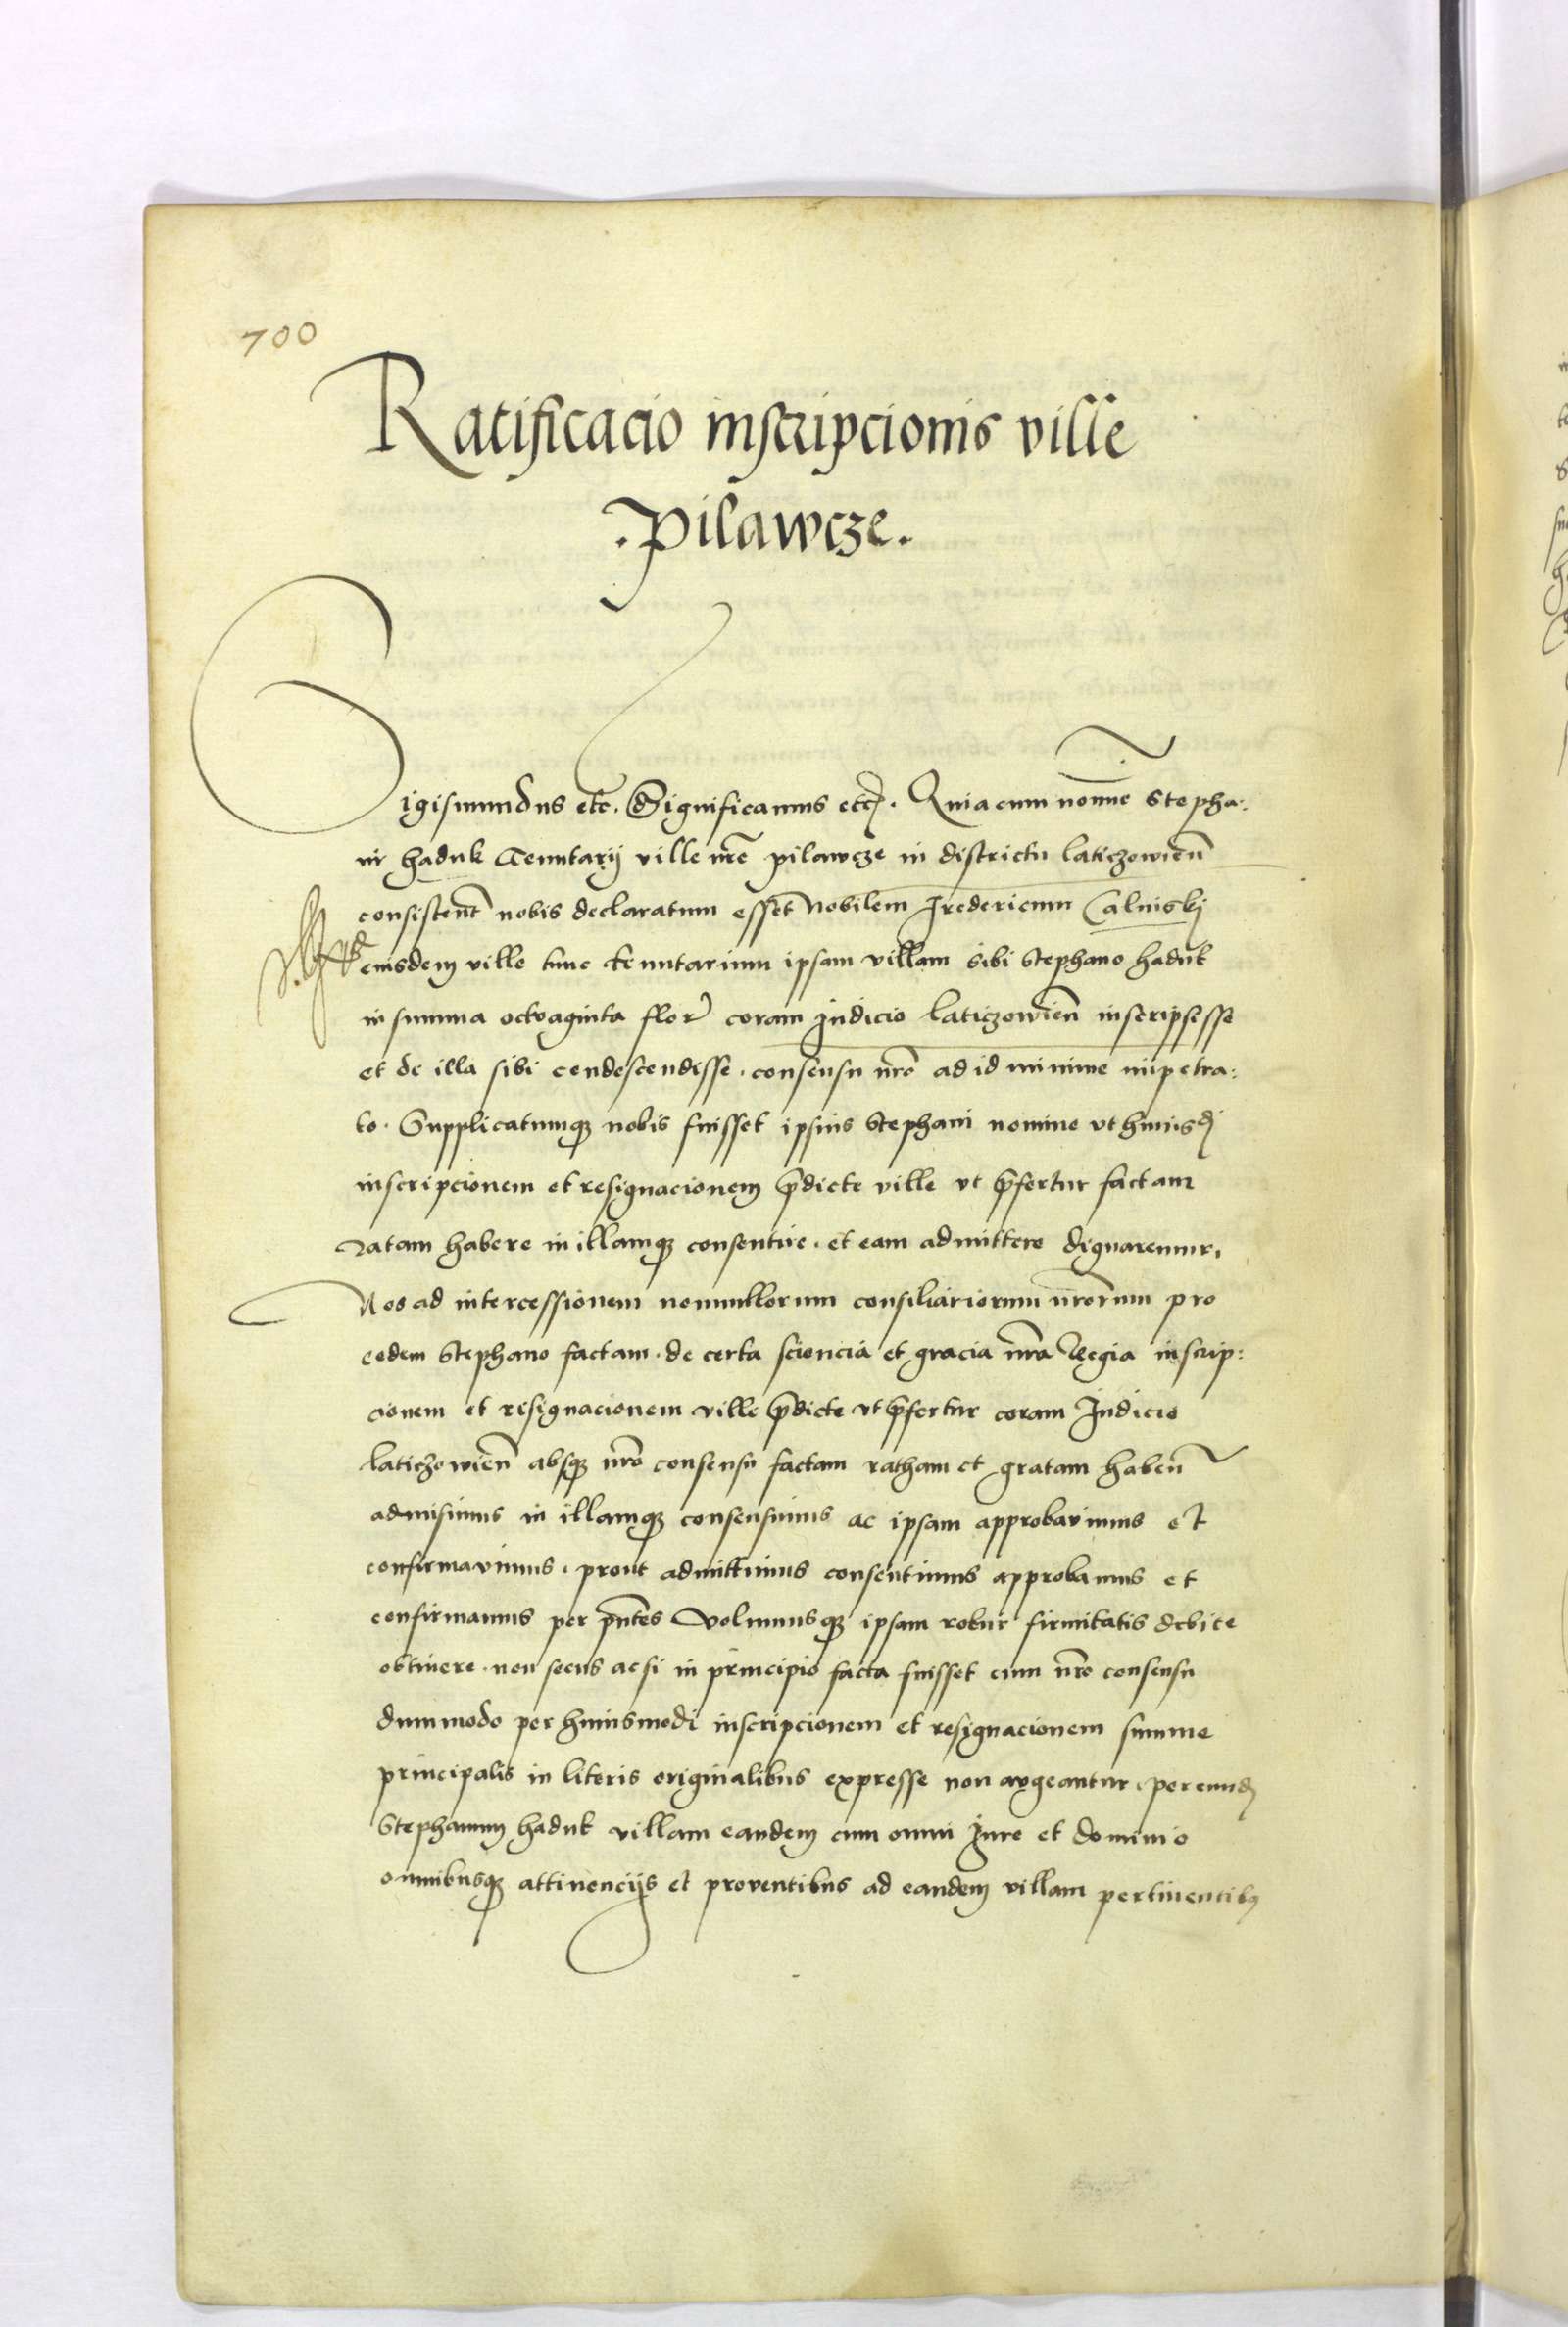 700
Ratificacio inscripcionis ville
.pilawcze.
Sigismundus etc. Significamus etc. Quia cum nomine Stepha:
ni haduk Tenutarij ville nre pilawcze in districtu laticzowien
consistent nobis declaratum esset Nobilem Fredericum Calniskj
eiusdem ville tunc tenutarium ipsam villam sibi Stephano haduk
in summa octvaginta flor coram Judicio laticzowien inscripsisse
et de illa sibi condescendisse. consensu nro ad id minime impetra:
to. Supplicatumq nobis fuisset ipsius Stephani nomine vt huiusdj
inscripcionem et resignacionem pdicte ville vt pfertur factam
ratam habere in illamq consentire. et eam admittere dignaremur,
Nos ad intercessionem nonnullorum consiliariorum nrorum pro
eodem Stephano factam. de certa sciencia et gracia nra Regia inscrip:
cionem et resignacionem ville pdicte vt pfertur coram Judicio
laticzowien absq nro consensu factam ratham et gratam haben
admisimus in illamq consensimus ac ipsam approbavimus et
confirmavimus. prout admittimus consentimus approbamus et
confirmamus per pntes Volumusq ipsam robur firmitatis debite
obtinere. non secus ac si in principio facta fuisset cum nro consensu
dummodo per huiusmodi inscripcionem et resignacionem summe
principalis in literis originalibus expresse non avgeantur. per eund
Stephanum haduk villam eandem cum omni Jure et dominio
omnibusq attinencijs et proventibus ad eandem villam pertinentibus